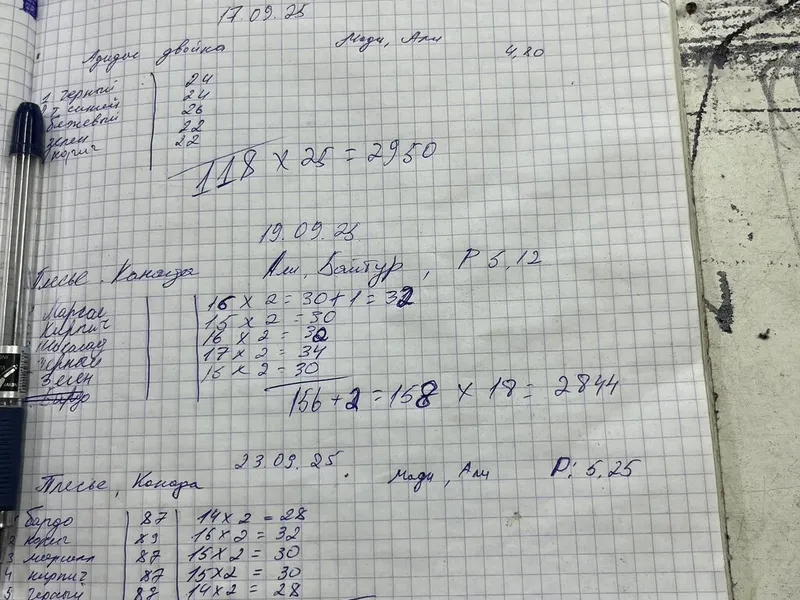 17.09.25
Адидас двойка Мади, Али 4,80
1 черный 24
2 т синий 24
бежевый 26
зелен 22
корич 22
118 x 25 = 2950
19.09.25
Плесье, Канада Али, Байтур, Р 5,12
16 x 2 = 30+1 = 32
Кирпич 15 x 2 = 30
шоколад 16 x 2 = 32
черный 17 x 2 = 34
Зелен 15 x 2 = 30
Бардо
156+2 = 158 x 18 = 2844
23.09.25
Плесье, Канада Мади, Али Р: 5,25
бардо 87 14x2 = 28
2 корич 89 16x2 = 32
3 87 15x2 = 30
4 кирпич 87 15x2 = 30
5 черный 14x2 = 28